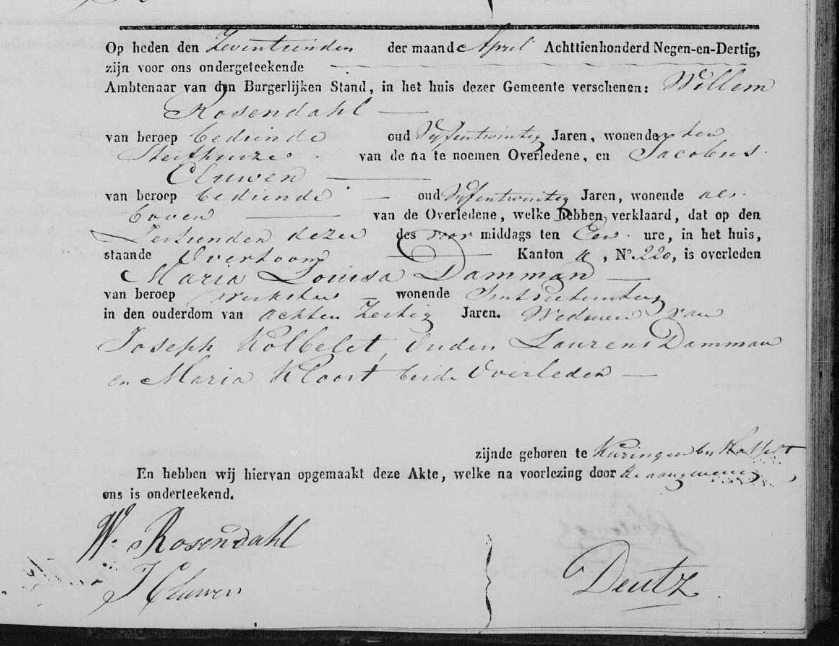 Op heden den Zeventienden der maand April Achttienhonderd Negen-en-Dertig,
zijn voor ons ondergeteekende
Ambtenaar van den Burgerlijken Stand, in het huis dezer Gemeente verschenen: Willem
Rosendahl
van beroep bediende oud Vijfentwintig Jaren, wonende ten
Sterfhuize van de na te noemen Overledene, en Jacobus
Cluwen
van beroep bediende oud Vijfentwintig Jaren, wonende als
boven van de Overledene, welke hebben verklaard, dat op den
dezer des voor middags ten Een ure, in het huis,
staande Overtoom Kanton N°. 220, is overleden
Maria Louisa Damman
van beroep werkster wonende
in den ouderdom van achten Zestig Jaren. Weduwe van
Joseph Kolbelet, Ouders Laurens Damman
en Maria Kloost beide Overleden
zijnde geboren te Kuringen by Hasselt
En hebben wij hiervan opgemaakt deze Akte, welke na voorlezing door
ons is onderteekend.
W. Rosendahl
J Cluwen
Deutz